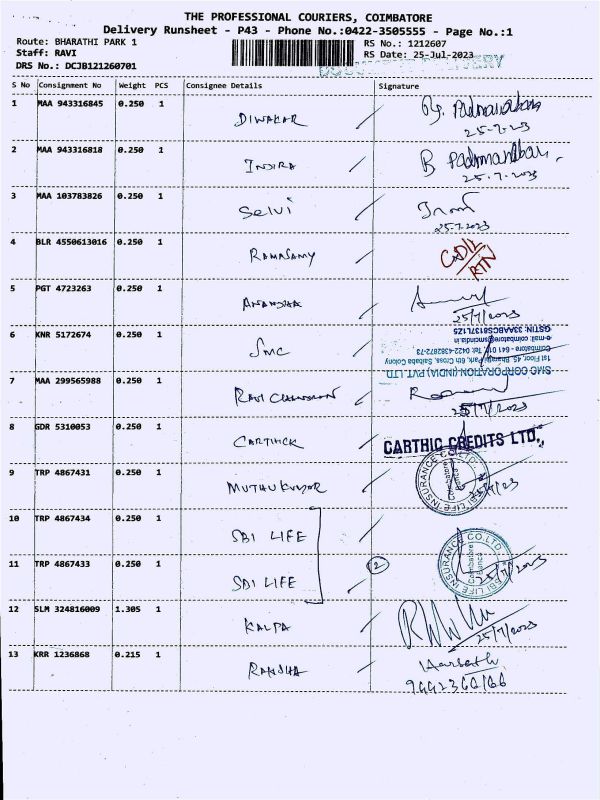 THE PROFESSIONAL COURIERS, COIMBATORE
Delivery Runsheet - P43 - Phone No.:0422-3505555 - Page No.:1
Route: BHARATHI PARK 1 RS No.: 1212607
Staff: RAVI RS Date: 25-Jul-2023
DRS No.: DCJB121260701 DELIVERY
S No Consignment No Weight PCS Consignee Details Signature
1 MAA 943316845 0.250 1 DIWAKAR Padmanabam
25-7-23
2 MAA 943316818 0.250 1 INDIRA B Padmanaban
25.7.2023
3 MAA 103783826 0.250 1 Selvi
25.7.2023
4 BLR 4550613016 0.250 1 RAMASAMY
RTN
5 PGT 4723263 0.250 1
25/7/2023
6 KNR 5172674 0.250 1 SMC
SMC CORPORATION (INDIA) PVT. LTD
1st Floor, 45, Bharathi Park, 6th Cross, Saibaba Colony
Coimbatore - 641 011. Tel: 0422-4382872-73
e-mail: coimbatore@smcindia.in
7 MAA 299565988 0.250 1 RAVI
25/7/2023
8 GDR 5310053 0.250 1 CARTHICK CARTHIC CREDITS LTD.,
9 TRP 4867431 0.250 1 MUTHUKUMAR SBI LIFE INSURANCE CO.LTD.
10 TRP 4867434 0.250 1 SBI LIFE
11 TRP 4867433 0.250 1 SBI LIFE 2 SBI LIFE INSURANCE CO.LTD. Coimbatore
25/7/2023
12 SLM 324816009 1.305 1 KALPA
25/7/2023
13 KRR 1236868 0.215 1